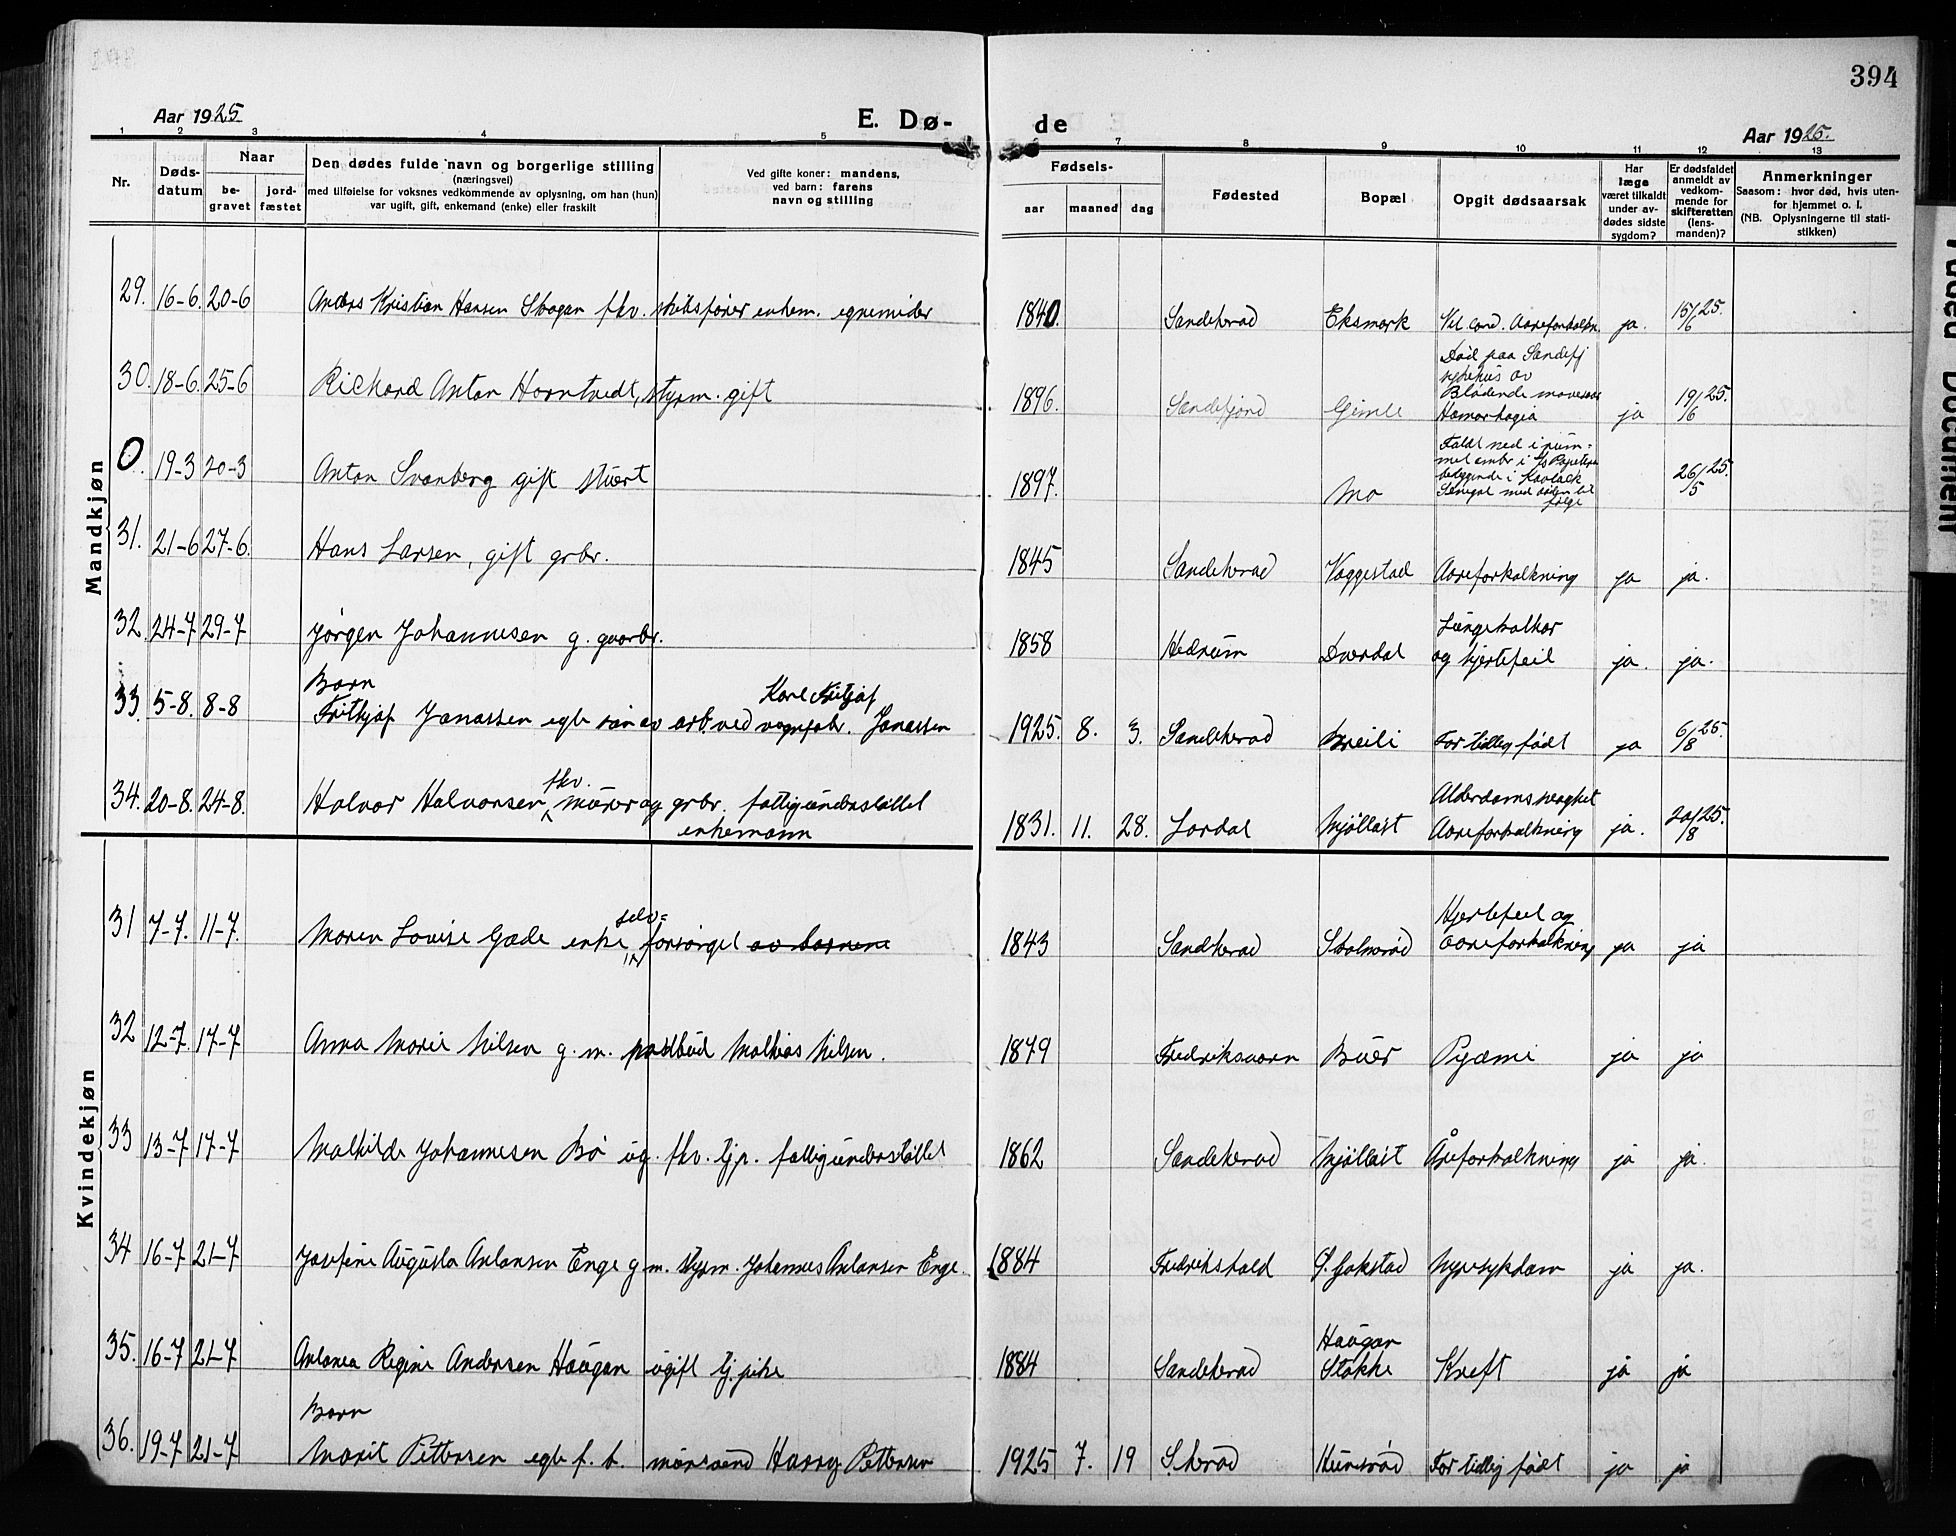 394
Aar 1925 E. Dø- de Aar 1925.
1 2 3 4 5 7 8 9 10 11 12 13
Nr.
Døds-
datum
Naar
be-
gravet
jord-
fæstet
Den dødes fulde navn og borgerlige stilling
(næringsvei)
med tilføielse for voksnes vedkommende av oplysning, om han (hun)
var ugift, gift, enkemand (enke) eller fraskilt
Ved gifte koner: mandens,
ved barn: farens
navn og stilling
Fødsels-
aar maaned dag
Fødested
Bopæl
Opgit dødsaarsak
Har
læge
været tilkaldt
under av-
dødes sidste
sygdom?
Er dødsfaldet
anmeldt av
vedkom-
mende for
skifteretten
(lens-
manden)?
Anmerkninger
Saasom: hvor død, hvis uten-
for hjemmet o. l.
(NB. Oplysningerne til stati-
stikken)
Mandkjøn
29. 16-6. 20-6 Anders Kristian Hansen Skogan fhv. skibsfører enkem. egnemidler 1840. Sandeherad Eksmork Vit. cord. Aareforkalkn. ja. 15/6 25.
30. 18-6. 25-6 Richard Anton Horntvedt, styrm. gift 1896. Sandefjord Gimle
Død paa Sandefj
sykehus av
Blødende mavesaar
Hæmorhagia ja 19/6 25.
0. 19-3 20-3 Anton Svanberg gift stuert 1897. Mo
Faldt ned i rum-
met ombr i
beliggende i Kaolack
Senegal med døden til
følge 26/5 25.
31. 21-6 27-6. Hans Larsen, gift grbr. 1845 Sandeherad Vaggestad Aareforkalkning ja ja.
32. 24-7 29-7 Jørgen Johannesen g. gaarbr. 1858 Hedrum Dverdal
Lungekatar
og hjertefeil ja. ja.
Barn
33. 5-8. 8-8 Fritkjof Jonassen egte søn av arb. ved vognfabr. Karl Fritjof Jonassen 1925. 8. 3. Sandeherad Breili For tidlig født ja 6/8 25.
34. 20-8. 24-8. Halvor Halvorsen fhv. murer og grbr. fattigunderstøttet
enkemann 1831. 11. 28. Lardal Mjølløst
Alderdomssvaghet
Aareforkalkning ja. 20/8 25.
Kvindekjøn
31 7-7. 11-7. Maren Lovise Gade enke selv= forsørget av barnene 1843 Sandherad Skolmerød
Hjertefeil og
aareforkalkning ja ja
32 12-7. 17-7 Anna Marie Nilsen g. m. postbud Mathias Nilsen. 1879 Fredriksværn Buer Pyæmi ja ja
33 13-7 17-7 Mathilde Johannesen Bø ug. fhv. tj.p. fattigunderstøttet 1862 Sandeherad Mjølløst Åreforkalkning ja ja.
34 16-7 21-7 Josefine Augusta Antonsen Enge g m. styrm. Johannes Antonsen Enge. 1884 Fredrikshald Ø. Gokstad Nyresykdom ja ja.
35. 16-7 21-7 Antonea Regine Andersen Haugan ugift tj.pike 1884 Sandeherad Haugan
Stokke Kreft ja ja
Barn
36. 19-7 21-7 Marit Pettersen egte f. b. mursvend Harry Pettersen 1925 7. 19 S.herad Hunsrød For tidlig født ja ja